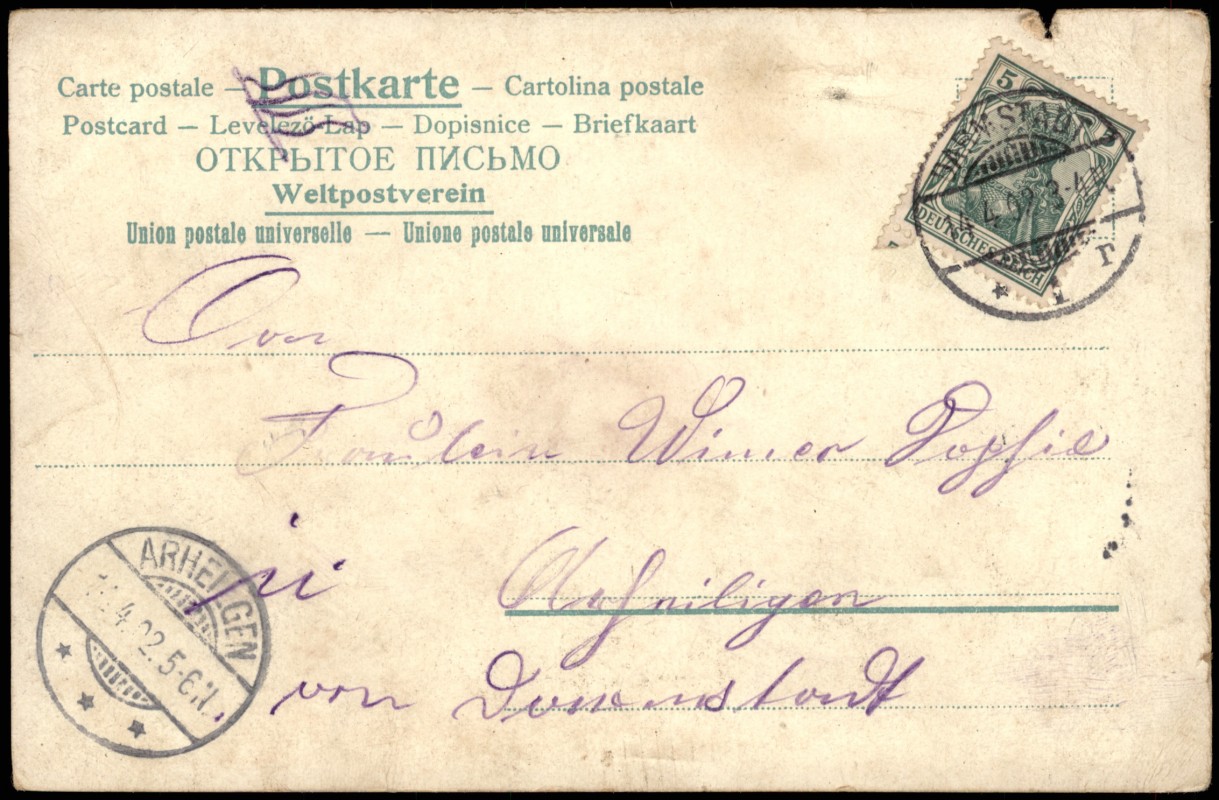 Carte postale — Postkarte — Cartolina postale
Postcard — Levelező-Lap — Dopisnice — Briefkaart
ОТКРЫТОЕ ПИСЬМО
Weltpostverein
Union postale universelle — Unione postale universale
5 5
DEUTSCHES REICH
DARMSTADT
4.02.3-4N.
* 1 r
Fräulein Wimer Sophie
in
von Darmstadt
ARHEILGEN
4.02.5-6.N.